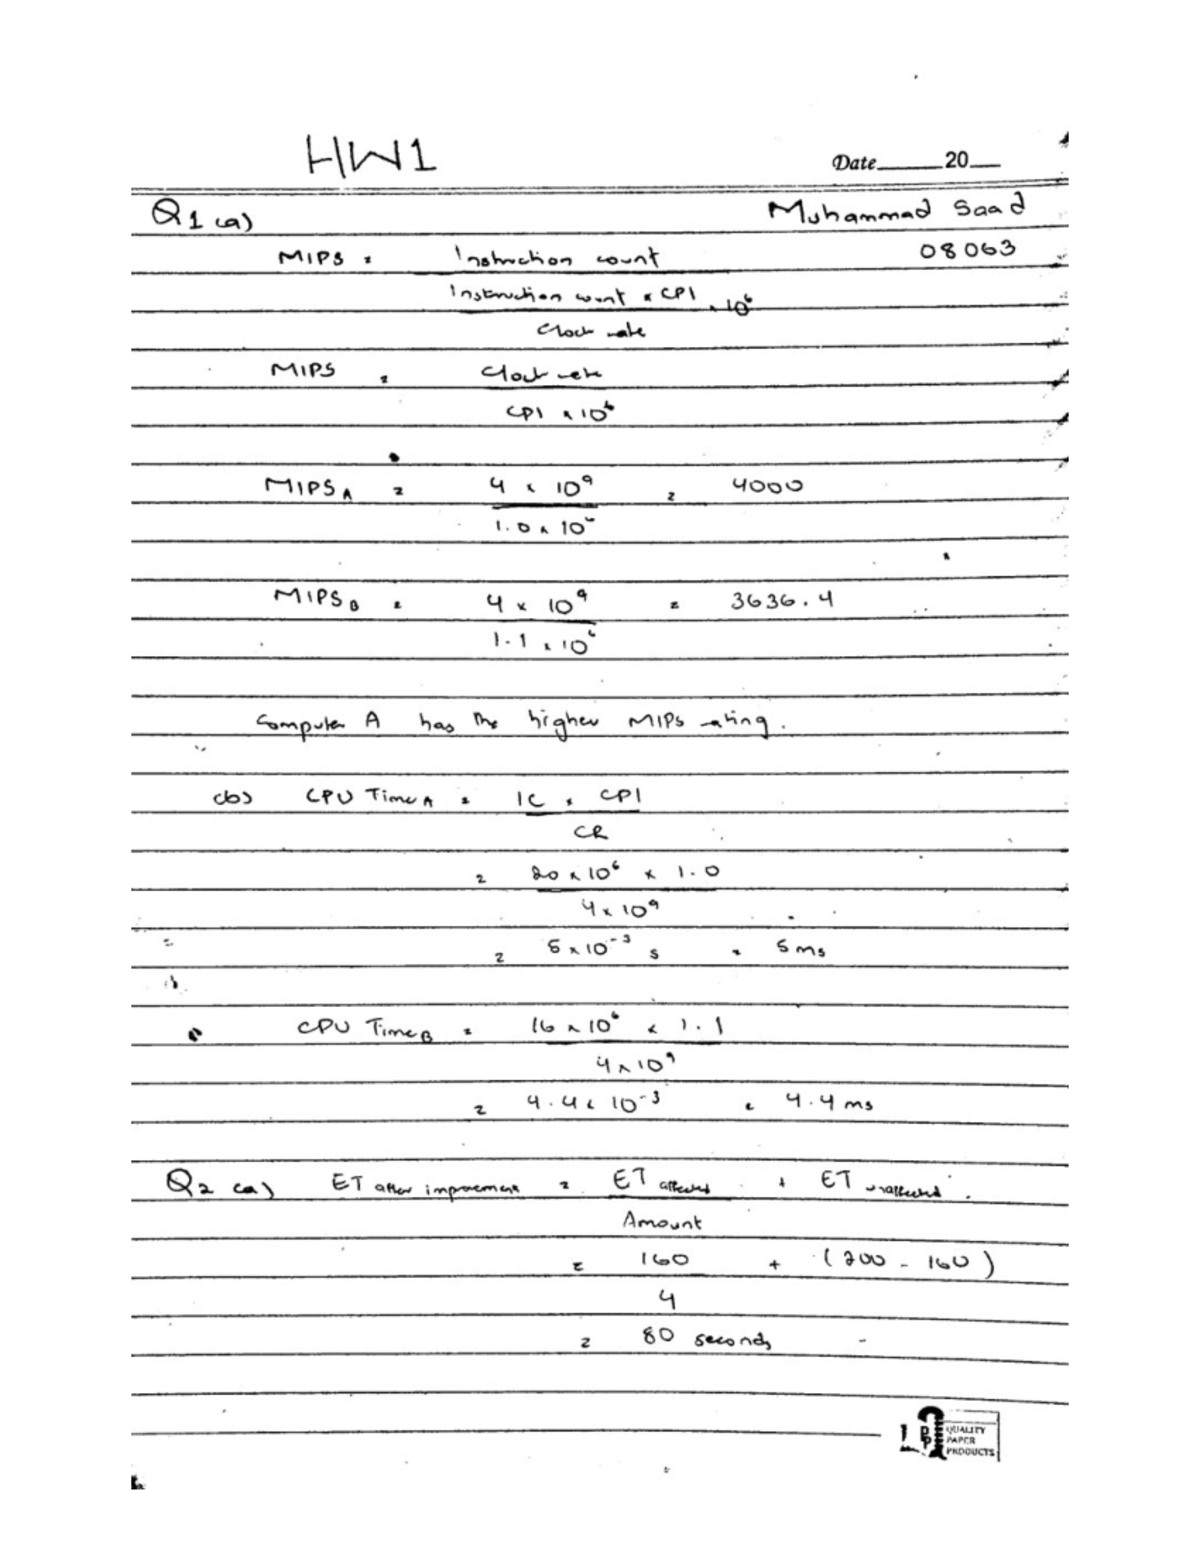 HW1
Date 20
Q1 (a) Muhammad Saad
MIPS = Instruction count 08063
Instruction count × CPI × 10^6
Clock rate
MIPS = Clock rate
CPI × 10^6
MIPS_A = 4 × 10^9 = 4000
1.0 × 10^6
MIPS_B = 4 × 10^9 = 3636.4
1.1 × 10^6
Computer A has the higher MIPs rating.
(b) CPU Time_A = IC × CPI
CR
= 20 × 10^6 × 1.0
4 × 10^9
= 5 × 10^-3 s = 5 ms
CPU Time_B = 16 × 10^6 × 1.1
4 × 10^9
= 4.4 × 10^-3 = 4.4 ms
Q2 (a) ET after improvement = ET affected + ET unaffected.
Amount
= 160 + (200 - 160)
4
= 80 seconds
QUALITY
PAPER
PRODUCTS